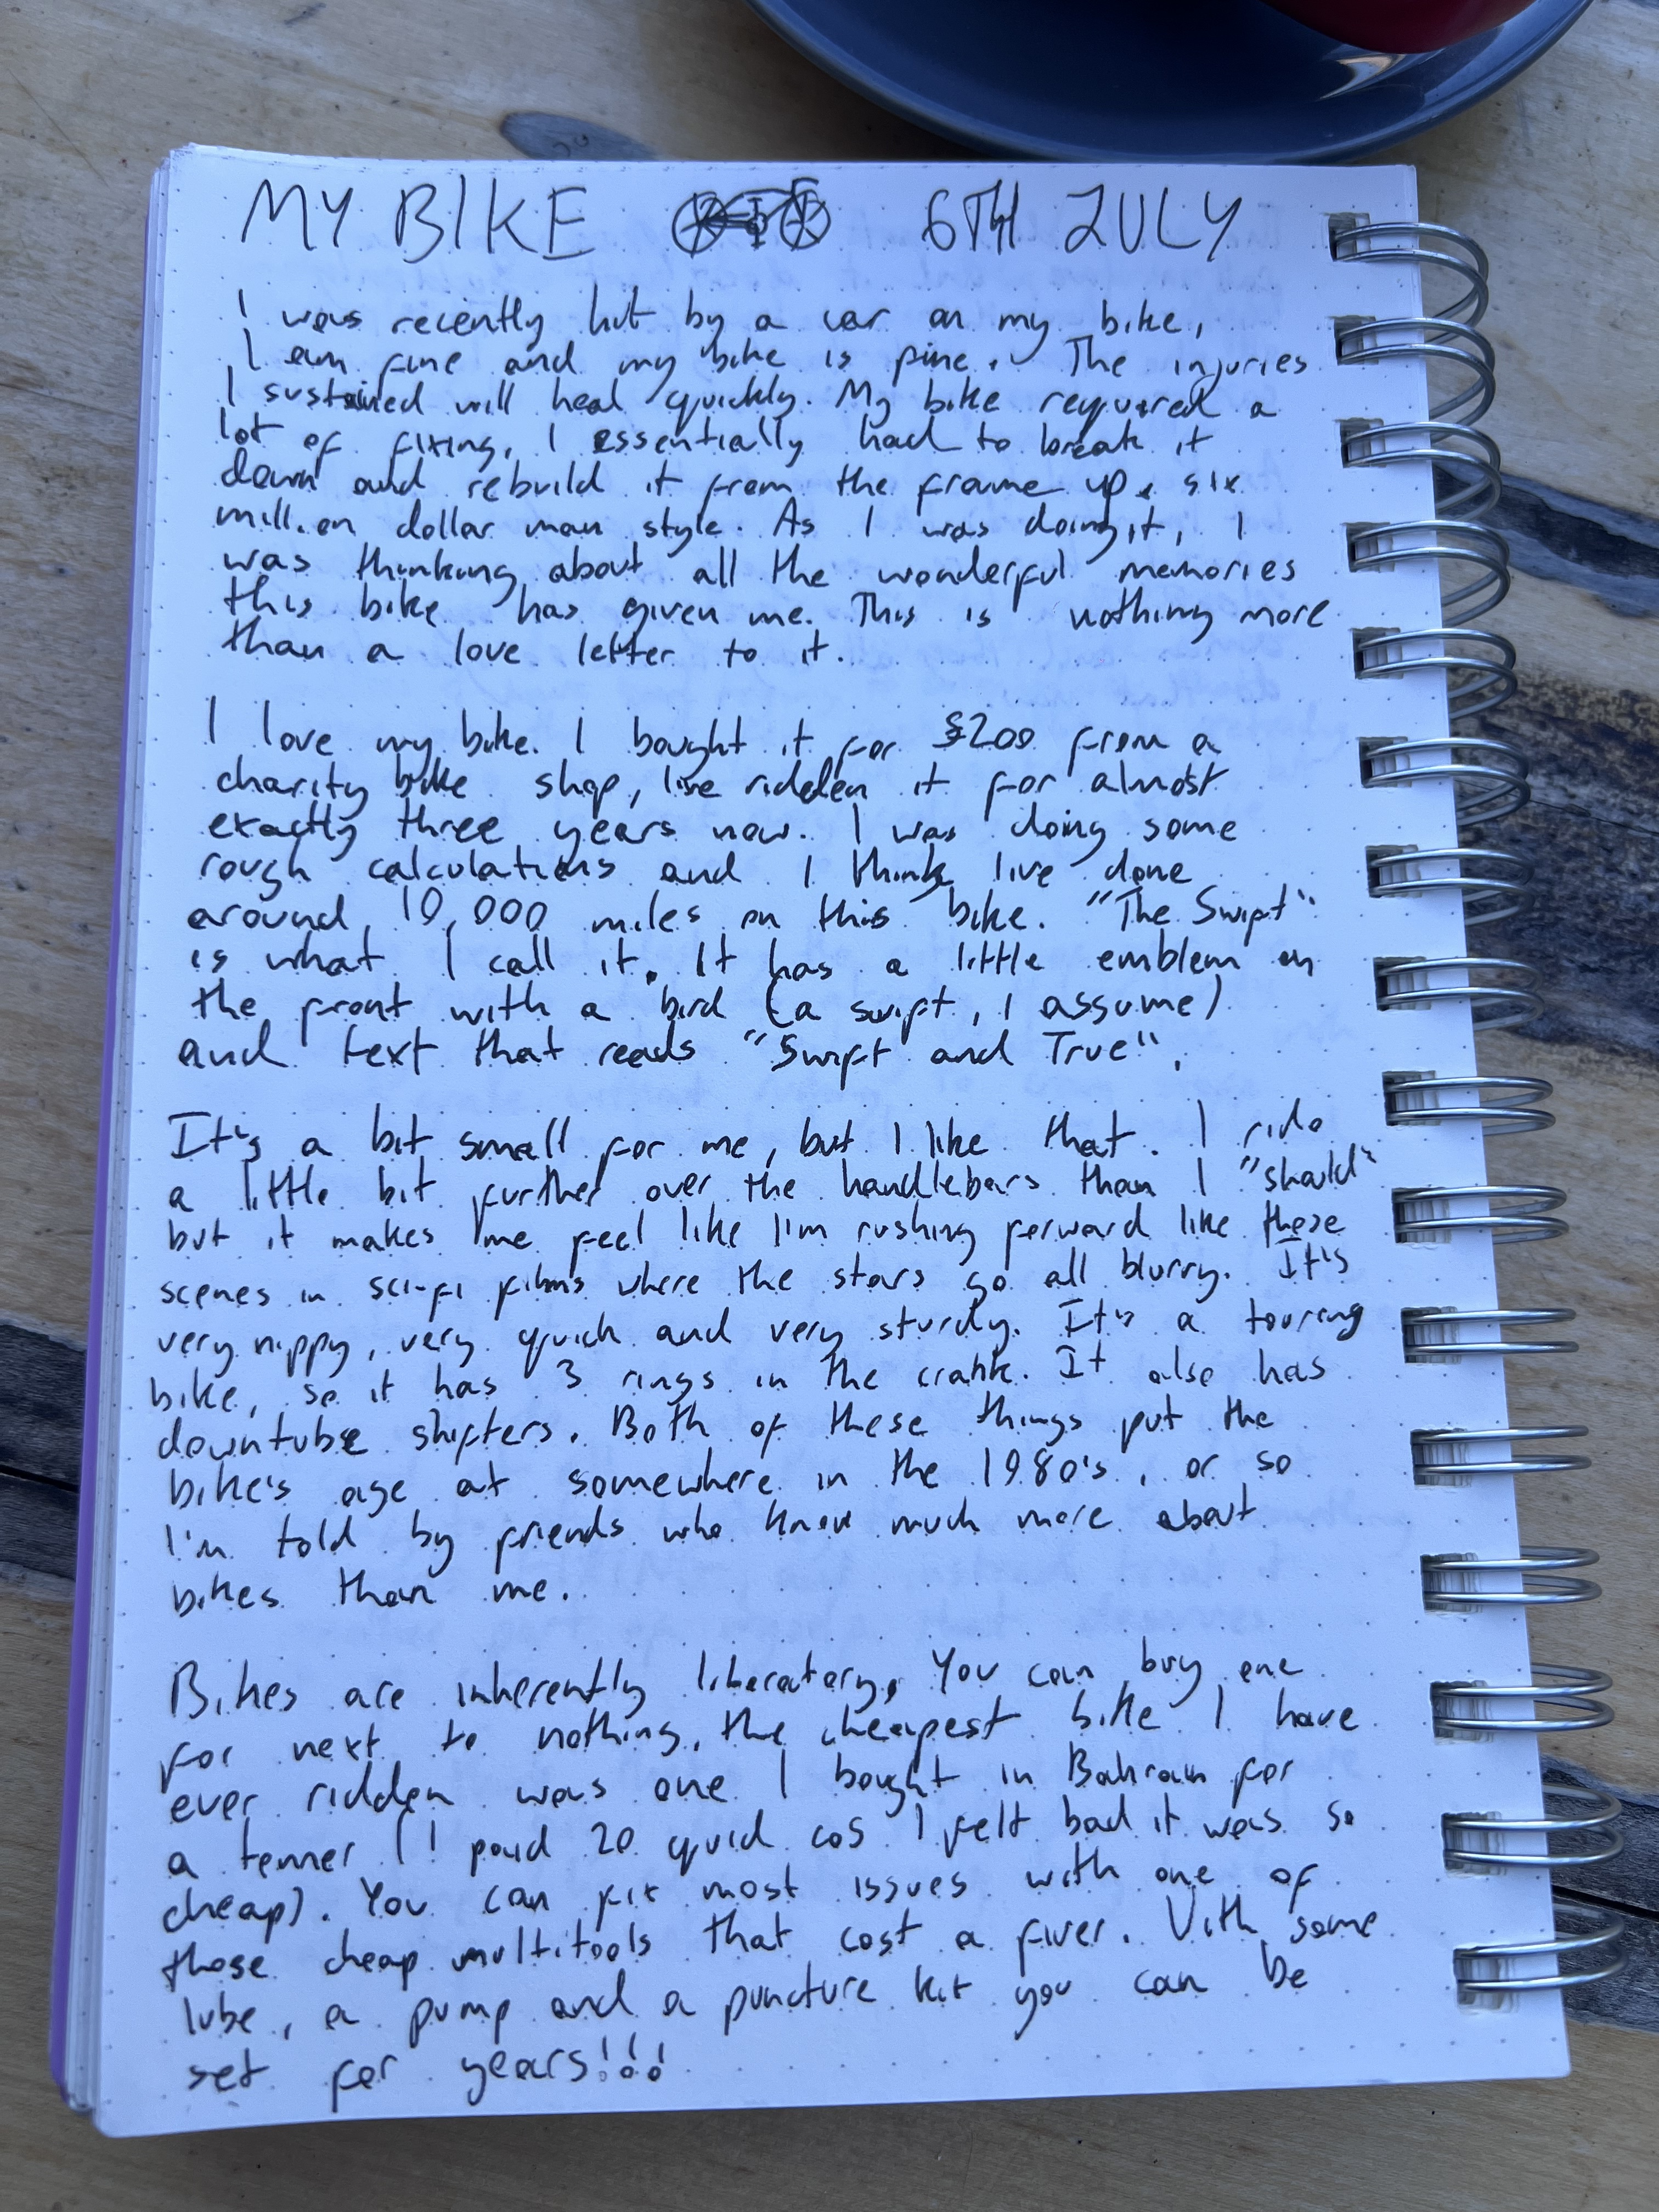 MY BIKE 6TH JULY
I was recently hit by a car on my bike,
I am fine and my bike is fine. The injuries
I sustained will heal quickly. My bike required a
lot of fixing, I essentially had to break it
down and rebuild it from the frame up, six
million dollar man style. As I was doing it, I
was thinking about all the wonderful memories
this bike has given me. This is nothing more
than a love letter to it.
I love my bike. I bought it for $200 from a
charity bike shop, I've ridden it for almost
exactly three years now. I was doing some
rough calculations and I think I've done
around 10,000 miles on this bike. "The Swift"
is what I call it. It has a little emblem on
the front with a bird (a swift, I assume)
and text that reads "Swift and True".
It's a bit small for me, but I like that. I ride
a little bit further over the handlebars than I "should"
but it makes me feel like I'm rushing forward like those
scenes in sci-fi films where the stars go all blurry. It's
very nippy, very quick and very sturdy. It's a touring
bike, so it has 3 rings in the crank. It also has
downtube shifters. Both of these things put the
bike's age at somewhere in the 1980's, or so
I'm told by friends who know much more about
bikes than me.
Bikes are inherently liberatory. You can buy one
for next to nothing, the cheapest bike I have
ever ridden was one I bought in Bahrain for
a tenner (I paid 20 quid cos I felt bad it was so
cheap). You can fix most issues with one of
those cheap multitools that cost a fiver. With some
lube, a pump and a puncture kit you can be
set for years!!!